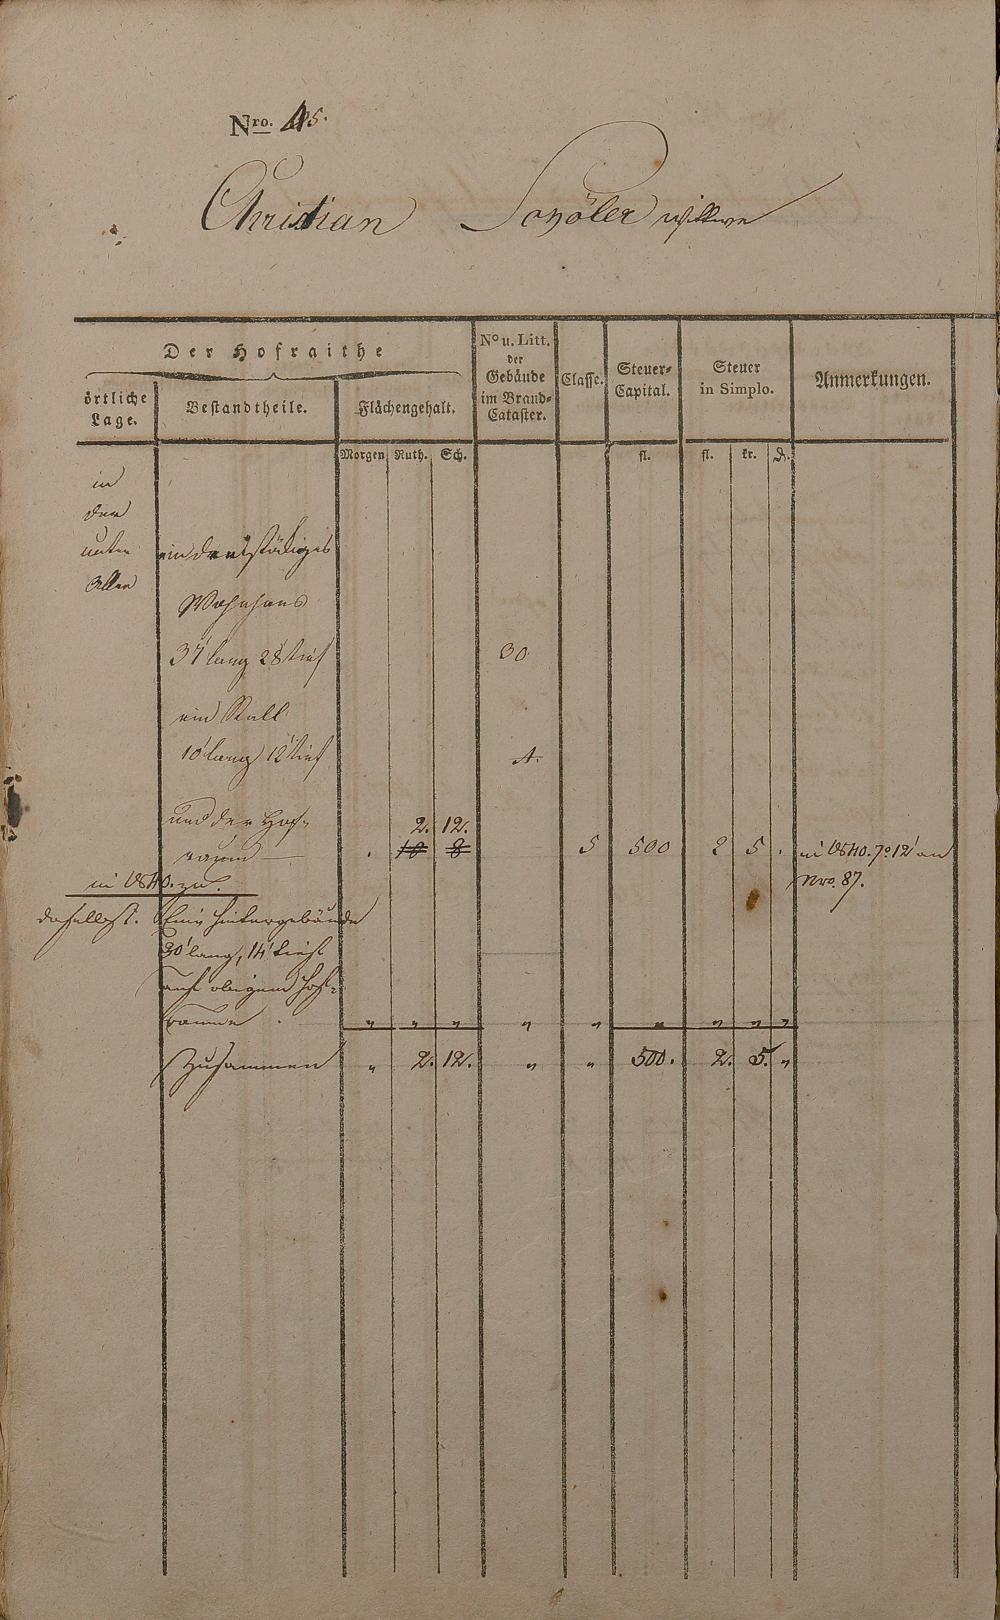 Nro. 45.
Christian Schöler wittwe
Der Hofraithe
örtliche Lage.
Bestandtheile.
Flächengehalt.
No u. Litt. der Gebäude im Brand-Cataster.
Classe.
Steuer-Capital.
Steuer in Simplo.
Anmerkungen.
Morgen Ruth. Sch. fl. fl. kr. d.
in
der
unter ein dreistöckiges
Wohnhaus
37' lang 28' tief 30
ein Stall
10' lang 12' tief A.
und der Hof-
2. 12.
raum . 10 8 5 500 2 5 . 7° 12' an
Nro. 87.
daselbst. Ein Hintergebäude
30' lang, 14' tief
auf obigem Hof-
raume . " " " " " " " " "
Zusammen " 2. 12. " " 500. 2. 5. "